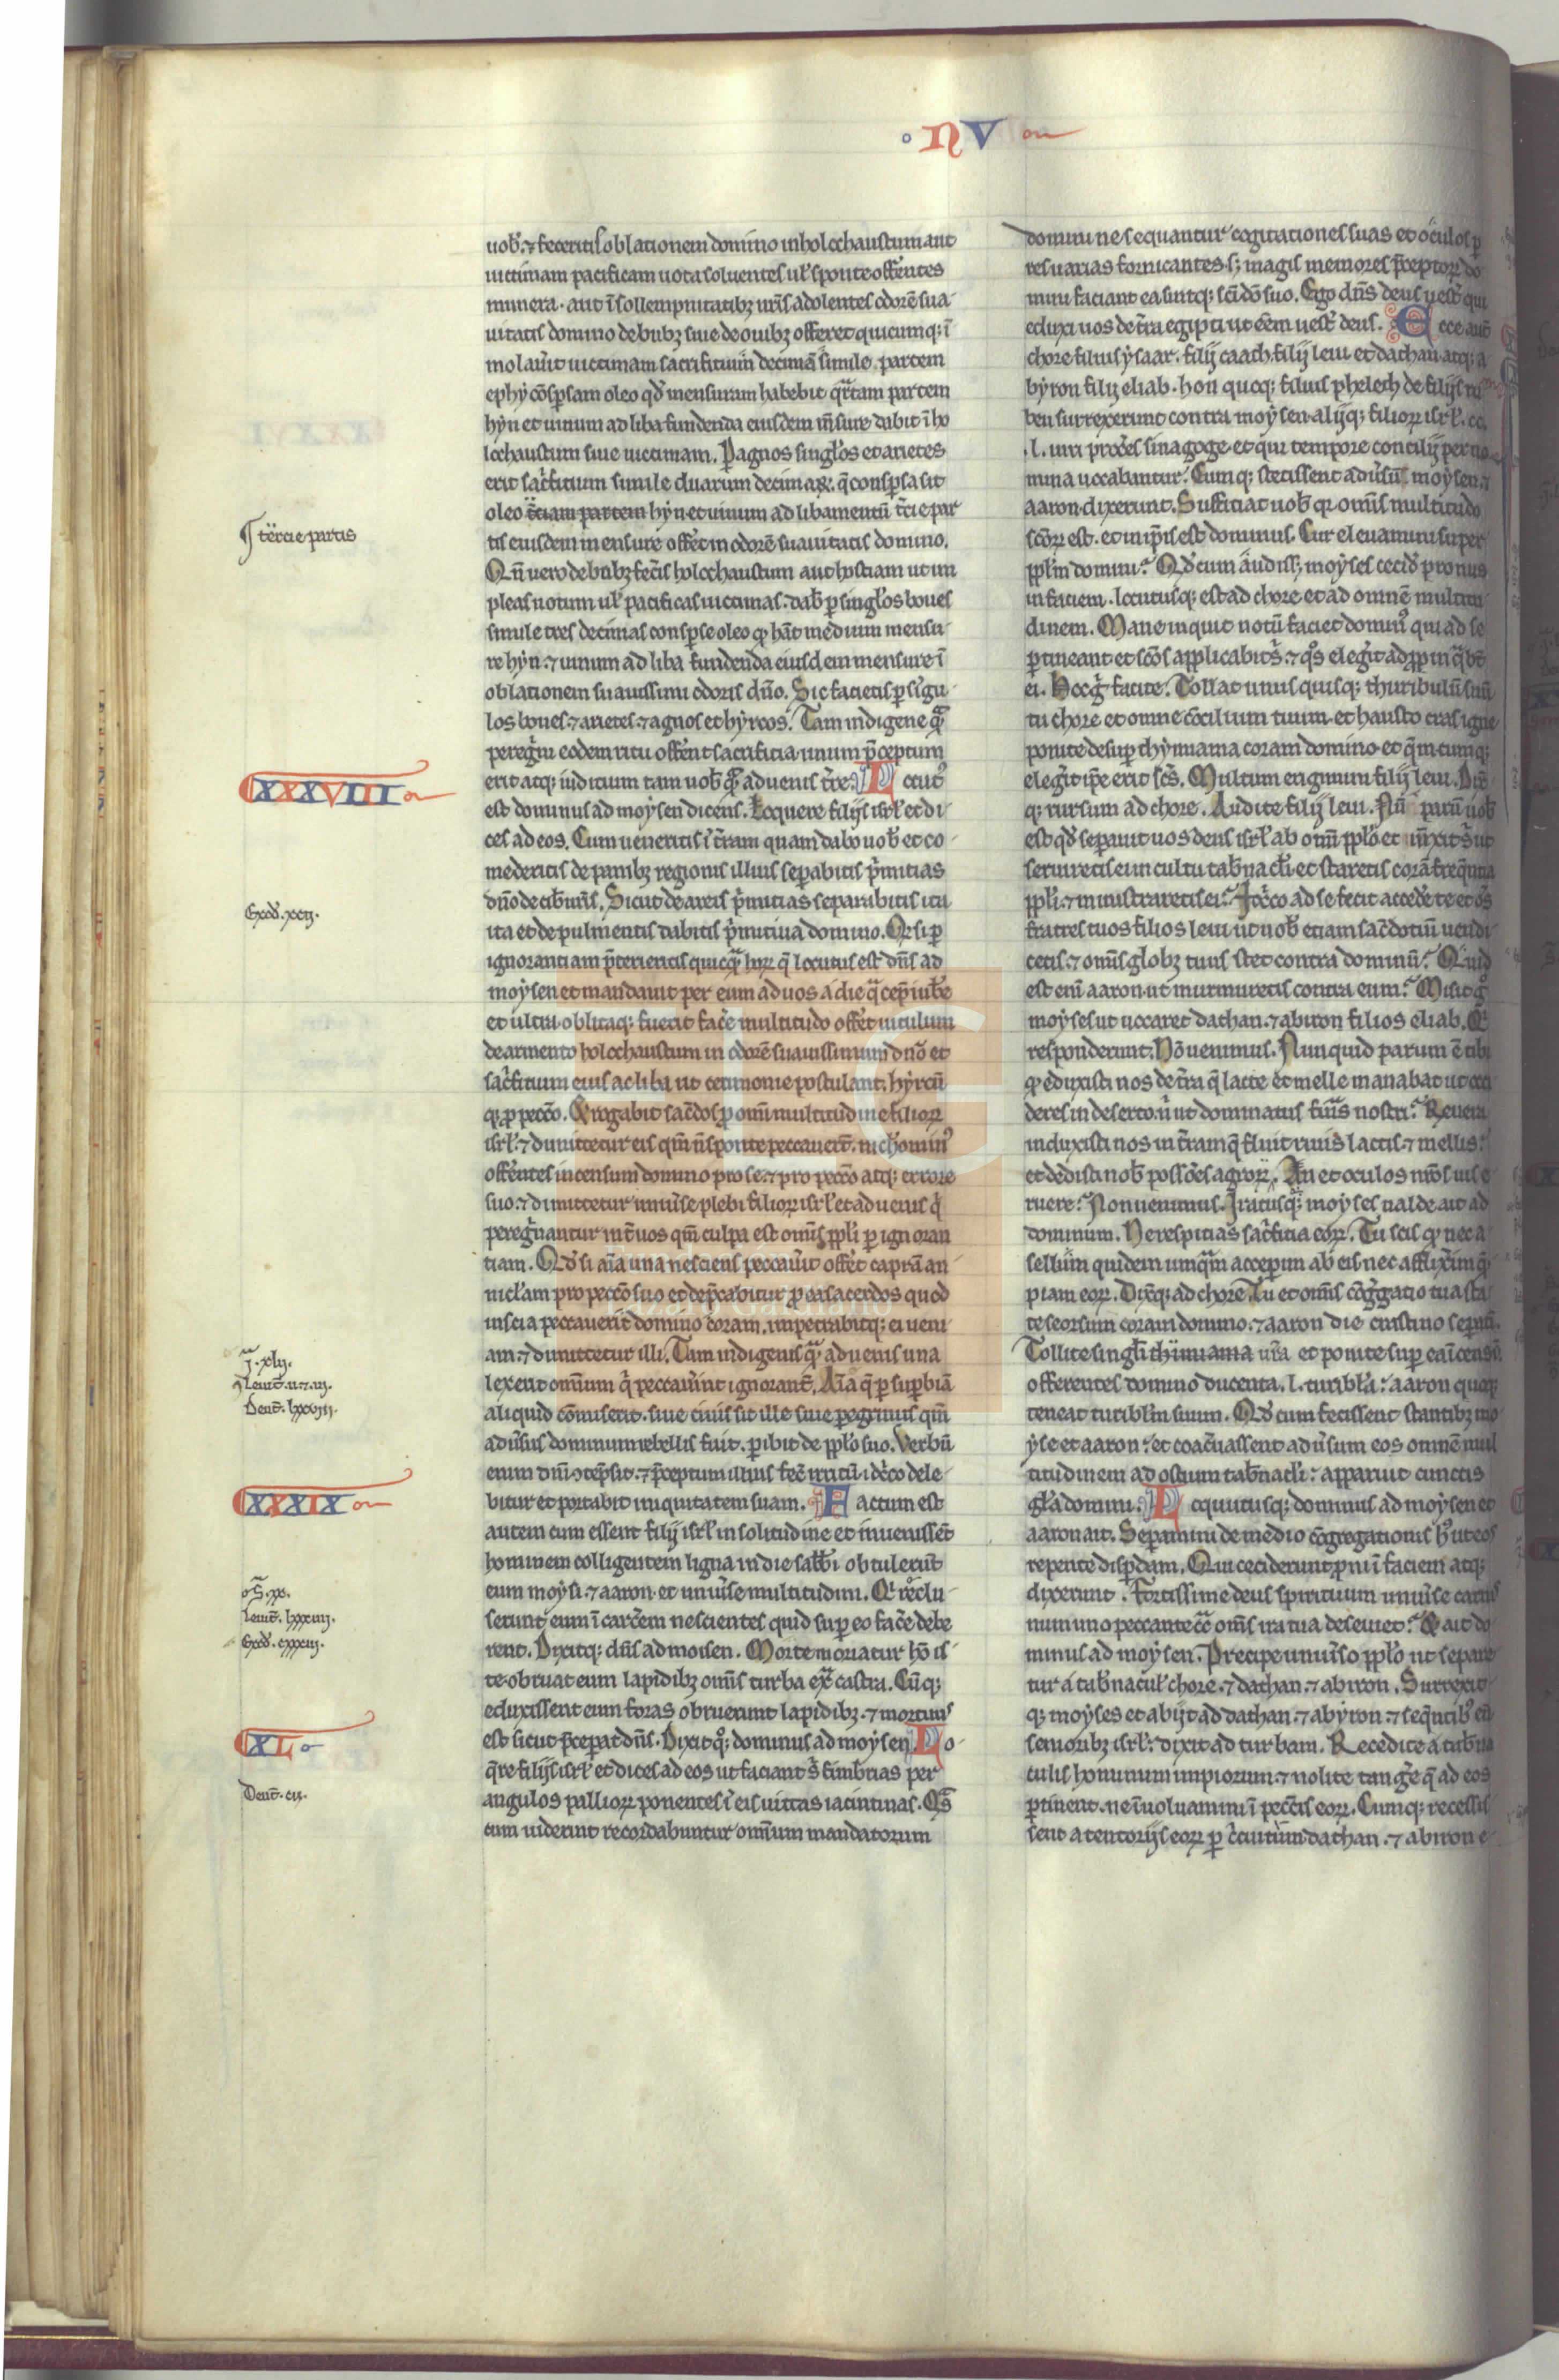 NV
uob̄.⁊ feceritis oblationem domino in holochaustum aut
uictimam pacificam uota soluentes uł sponte offerentes
munera. aut ī sollempnitatibꝫ ur̄is adolentes odorē sua
uitatis domino de bubꝫ siue de ouibꝫ offeret quicumqꝫ ī
molau̾it uictimam sacrificium decimā simile partem
ephy cōsp̄sam oleo qd̄ mensuram habebit qrtam partem
hyn et uinum ad liba fundenda eiusdem m̄sure dabit ī ho
lochaustum siue uictimam. P agnos singłos et arietes
erit sac̾ficium simile duarum decimaꝝ. q̄ consp̄sa sit
oleo terciam partem hyn et uinum ad libamentū t̾cie par
¶ tercie partis
tis eiusdem mensure offeret in odorē suauitatis domino.
Qn̄ uero de bubꝫ fecis̄ holochaustum aut hostiam ut im
pleas uotum uł pacificas uictimas. dab̄ p singłos boues
simile tres decimas consp̄se oleo qd̄ hāt medium mensu
re hyn.⁊ uinum ad liba fundenda eiusdem mensure ī
oblationem suauissimi odoris dn̄o. Sic facietis p sīgu
los boues.⁊ arietes.⁊ agnos et hyrcos. Tam indigene qm̄
peregrini eodem ritu offerent sacrificia. unum p̄ceptum
erit atqꝫ iudicium tam uob̄ qm̄ aduenis t̾re. L ocut̾
XXXVIII
est dominus ad moysen dicens. Loquere filijs isrł et di
ces ad eos. Cum ueneritis ī t̾ram quam dabo uob̄ et co
mederitis de panibꝫ regionis illius sepabitis p̾mitias
dn̄o de cib̄ ur̄is. Sicut de areis p̾mitias separabitis ita
Exod̄. xxij.
ita et de pulmentis dabitis p̾mitiua domino. Qr̄ si p
ignorantiam p̄terieritis quicqm̄ hoꝝ q̄ locutus est dn̄s ad
moysen et mandauit per eum ad uos a die qua cepit iub̾e
et ultra. oblitaqꝫ fuerit fac̾e multitudo offeret uitulum
de armento holochaustum in odorē suauissimum dn̄o et
sac̾ficium eius ac liba ut cerimonie postulant. hyrcū
qꝫ p pecc̄o. & rogabit sac̾dos p omī multitudine filioꝝ
isrł.⁊ dimittetur eis qm̄ n̄ sponte peccauert̄. nichomin̾
offerentes incensum domino pro se.⁊ pro pecc̄o atqꝫ errore
suo.⁊ dimittetur uniu̾se plebi filioꝝ isrł et aduenis q̾
peregrinantur int̾ uos qm̄ culpa est omīs ppłi p ignoran
tiam. Qd̄ si aīa una nesciens peccau̾it offeret caprā an
nicłam pro pecc̄o suo et dep̄cabitur p ea sacerdos quod
inscia peccauerit domino coram. impetrabitqꝫ ei ueni
J. xlij.
am.⁊ dimittetur illi. Tam indigenis qm̄ aduenis una
Leuit̄. ij.⁊.iij.
lex erit omnium q̾ peccau̾int ignorant̄. Aīa q̄ p supbiā
Deut̄. lxxviij.
aliquid cōmiserit. siue ciuis sit ille siue peregrinus qm̄
adu̾sus dominum rebellis fuit. pibit de ppło suo. Verbū
enim dn̄i ɔtēpsit.⁊ p̄ceptum illius fec̄ irritū. idc̾co dele
XXXIX
bitur et portabit iniquitatem suam. F actum est
autem cum essent filij isrł in solitudine et inuenissēt
hominem colligentem ligna in die sabb̄i obtulerūt
S. xx.
eum moysi.⁊ aaron. et uniu̾se multitudini. Qi reclu
Leuit̄. lxxxiij.
serunt eum ī carc̾em nescientes quid sup eo fac̾e debe
Exod̄. cxxxij.
rent. Dixitqꝫ dn̄s ad moisen. Morte moriatur hō is
te. obruat eum lapidibꝫ omīs turba ext̾ castra. Cūqꝫ
eduxissent eum foras obruerunt lapidibꝫ.⁊ mortuus
XL
est sicut p̄cepat dn̄s. Dixit qꝫ dominus ad moysen. L o
q̾re filijs isrł et dices ad eos ut faciant s̾ fimbrias per
Deut̄. cij.
angulos pallioꝝ ponentes ī eis uittas iacintinas. Qs̄
cum uiderint recordabuntur omnium mandatorum
domini ne sequantur cogitationes suas et oculos p
res uarias fornicantes. sꝫ magis memores p̄ceptoꝝ do
mini faciant ea sintqꝫ sc̄i dō suo. Ego dn̄s deus uest̾ qui
eduxi uos de t̾ra egipti ut eēm uest̾ deus. E cce aut̄
chore filius ysaar. filij caath. filij leui et dathan atqꝫ a
byron filij eliab. hon quoqꝫ filius pheleth de filijs ru
ben surrexerunt contra moysen. alijqꝫ filioꝝ isrł. cc.
.l. uiri proc̾es sinagoge. et qui tempore concilij per no
mina uocabantur. Cumqꝫ stetissent adu̾sū moysen.⁊
aaron. dixerunt. Sufficiat uob̄ qr̄ omīs multitudo
sc̄oꝝ est. et in ip̄is est dominus. Cur eleuamini super
ppłm domini? Qd̄ cum audissꝫ moyses cecid̾ pronus
in faciem. locutusqꝫ est ad chore et ad omnē multitu
dinem. Mane inquit notū faciet domin̾ qui ad se
ptineant et sc̄os applicabit s̾.⁊ qs̾ elegit appropinqb̄t
ei. Hoc g̾ facite. Tollat unusquisqꝫ thuribulū suū
tu chore et omne cōcilium tuum. et hausto cras igne
ponite desup thymiama coram domino. et q̄mcumqꝫ
elegit ip̄e erit sc̄s. Multum erigimini filij leui. Dix̄
qꝫ rursum ad chore. Audite filij leui. Nū parū uob̄
est qd̄ separauit uos deus isrł ab omī ppło et iūxit s̾ ut
seruiretis ei in cultu tab̾nacłi et staretis corā freq̄ntia
ppłi.⁊ ministraretis ei? Idc̾co ad se fecit acced̾e te et os̄
fratres tuos filios leui ut uob̄ etiam sac̾dotiū uendi
cetis.⁊ omīs globꝫ tuus stet contra dominū? Quid
est enī aaron. ut murmuretis contra eum? Misit g̾
moyses ut uocaret dathan.⁊ abiron filios eliab. Qi
responderunt. Nō uenimus. Nunquid parum ē tibi
qd̄ eduxisti nos de t̾ra q̄ lacte et melle manabat ut occi
deres in deserto. n̾ ut dominatus fu̾is nostri? Reuera
induxisti nos in t̾ram q̄ fluit riuis lactis.⁊ mellis.
et dedisti nob̄ possc̄es agroꝝ. An et oculos nr̄os uis e
ruere? Non uenimus. Iratusqꝫ moyses ualde ait ad
dominum. Ne respicias sac̾ficia eoꝝ. Tu scis qd̄ nec a
sellum quidem umqm̄ acceperim ab eis nec afflixerim qm̄
piam eoꝝ. Dix̄qꝫ ad chore. Tu et omīs cōgregatio tua sta
te seorsum coram domino.⁊ aaron die crastino sepatī.
Tollite singłi thimiama ur̄a et ponite sup ea īcensū.
offerentes domino ducenta. l. turibła. aaron quoqꝫ
teneat turibłm suum. Qd̄ cum fecissent stantibꝫ mo
yse et aaron. et coac̾uassent adu̾sum eos omnē mul
titudinem ad ostium tab̾nacłi. apparuit cunctis
głā domini. L oquutusqꝫ dominus ad moysen et
aaron ait. Separamini de medio cōgregationis hui̾ ut eos
repente disp̄dam. Qui ceciderunt p̄ni ī faciem atqꝫ
dixerunt. Fortissime deus spirituum uniu̾se carnis
num uno peccante cōt̾ omīs ira tua deseuiet? & ait do
minus ad moysen. Precipe uniu̾so ppło ut separe
tur a tab̾nacuł chore.⁊ dathan.⁊ abiron. Surrexit
qꝫ moyses et abijt ad dathan.⁊ abyron.⁊ seq̄ntibꝫ eū
senioribꝫ isrł. dixit ad turbam. Recedite a tab̾na
culis hominum impiorum.⁊ nolite tang̾e q̄ ad eos
ptinent. ne īuoluamini ī pecc̄tis eoꝝ. Cumqꝫ recessis
sent a tentorijs eoꝝ p c̾cuitum dathan.⁊ abiron e